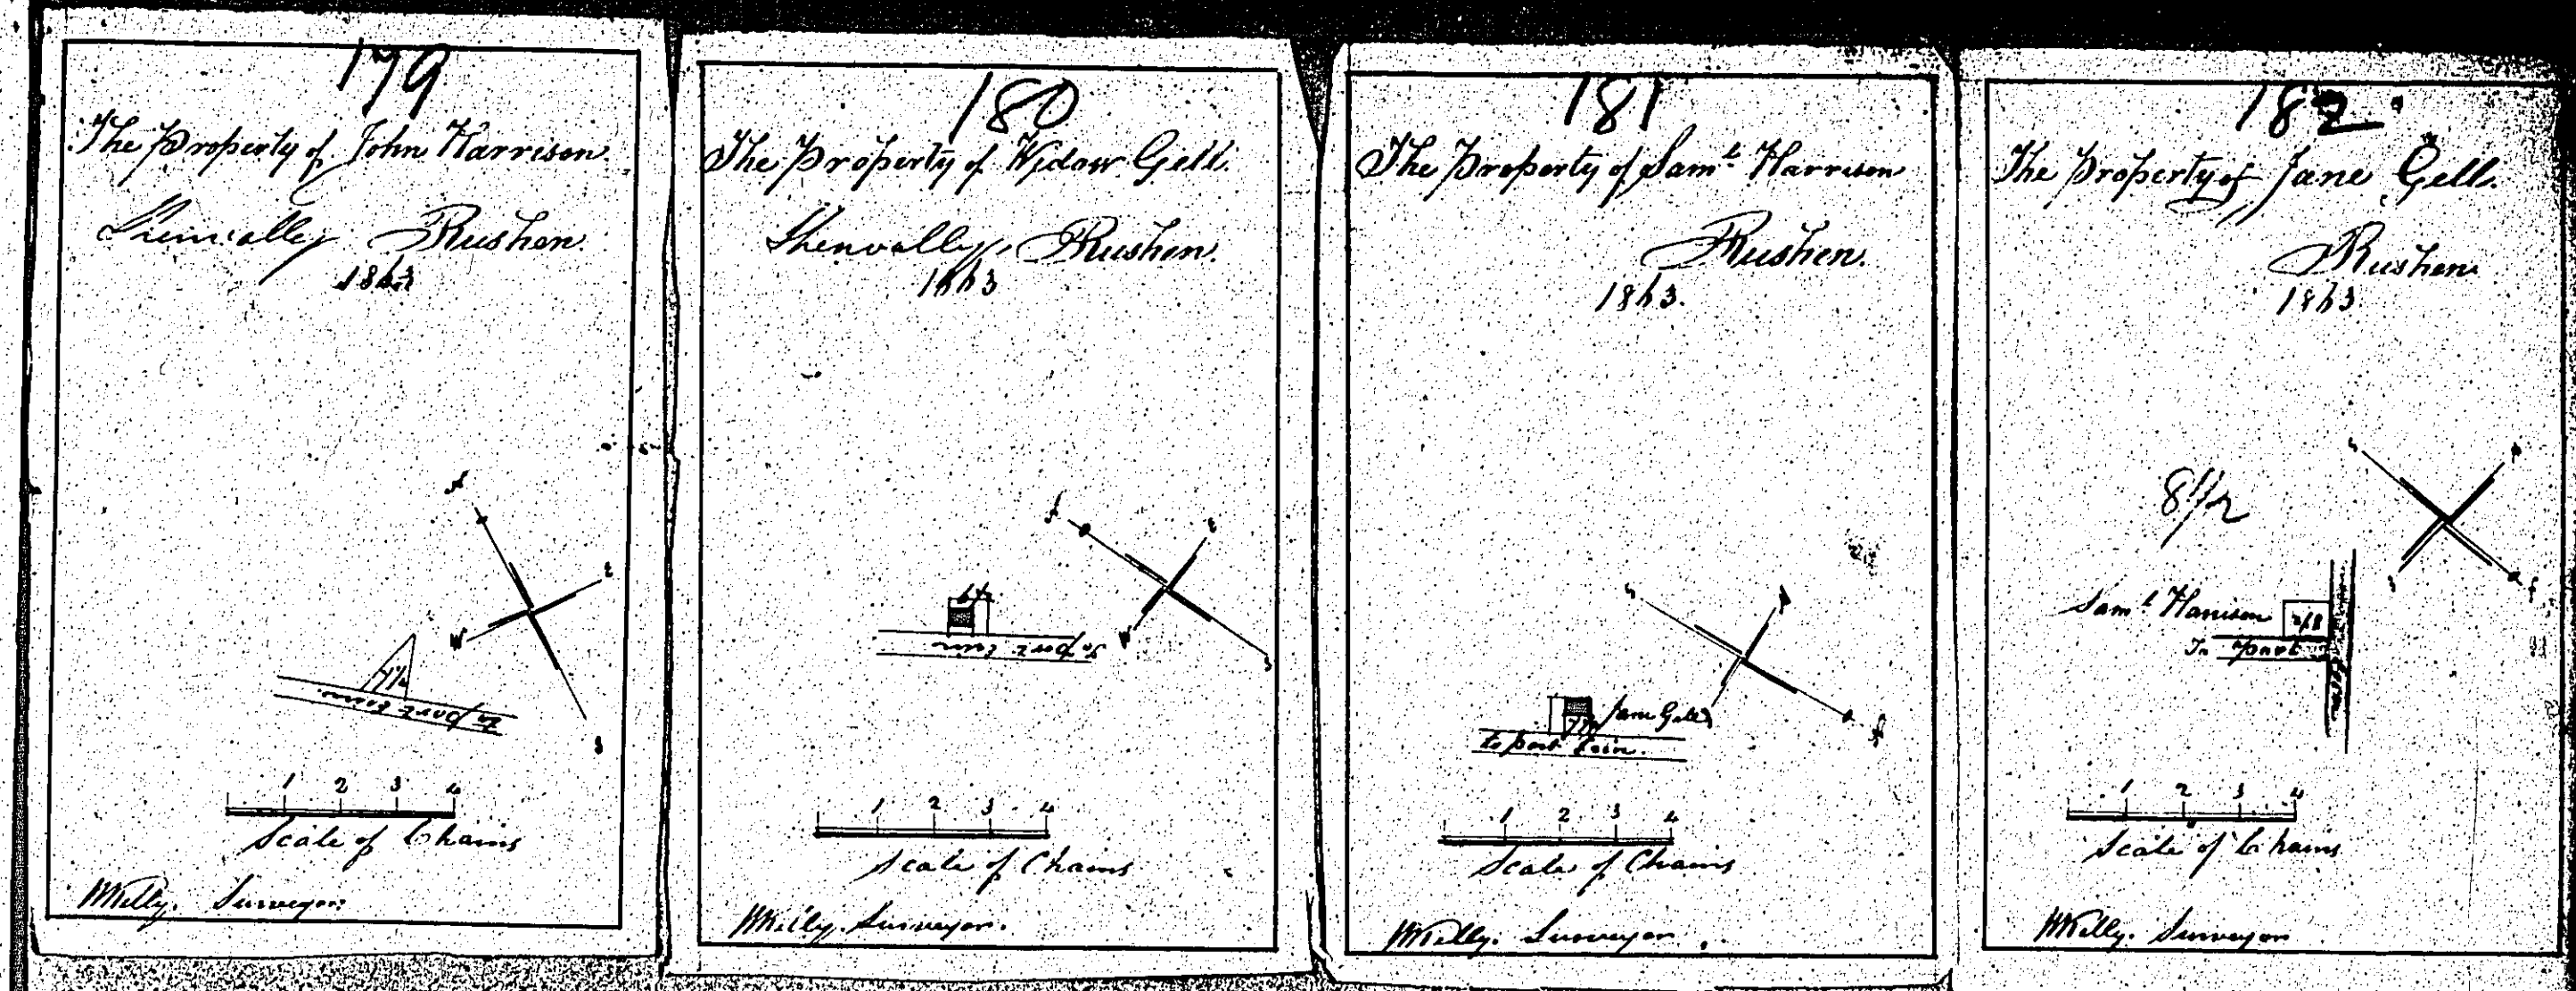 179
The Property of John Harrison.
Shenvalley Rushen.
1863
N
E
W
S
7½
To Port Erin
1 2 3 4
Scale of Chains
WKelly. Surveyor.
180
The Property of Widow Gell.
Shenvalley, Rushen.
1863
E
W
S
6½
To Port Erin
1 2 3 4
Scale of Chains
WKelly. Surveyor.
181
The Property of Saml Harrison
Rushen.
1863.
Jane Gell
to Port Erin.
1 2 3 4
Scale of Chains
WKelly. Surveyor
182
The Property of Jane Gell.
Rushen
1863
8½
Saml Harrison
8½
To Port
Erin
1 2 3 4
Scale of Chains
WKelly. Surveyor